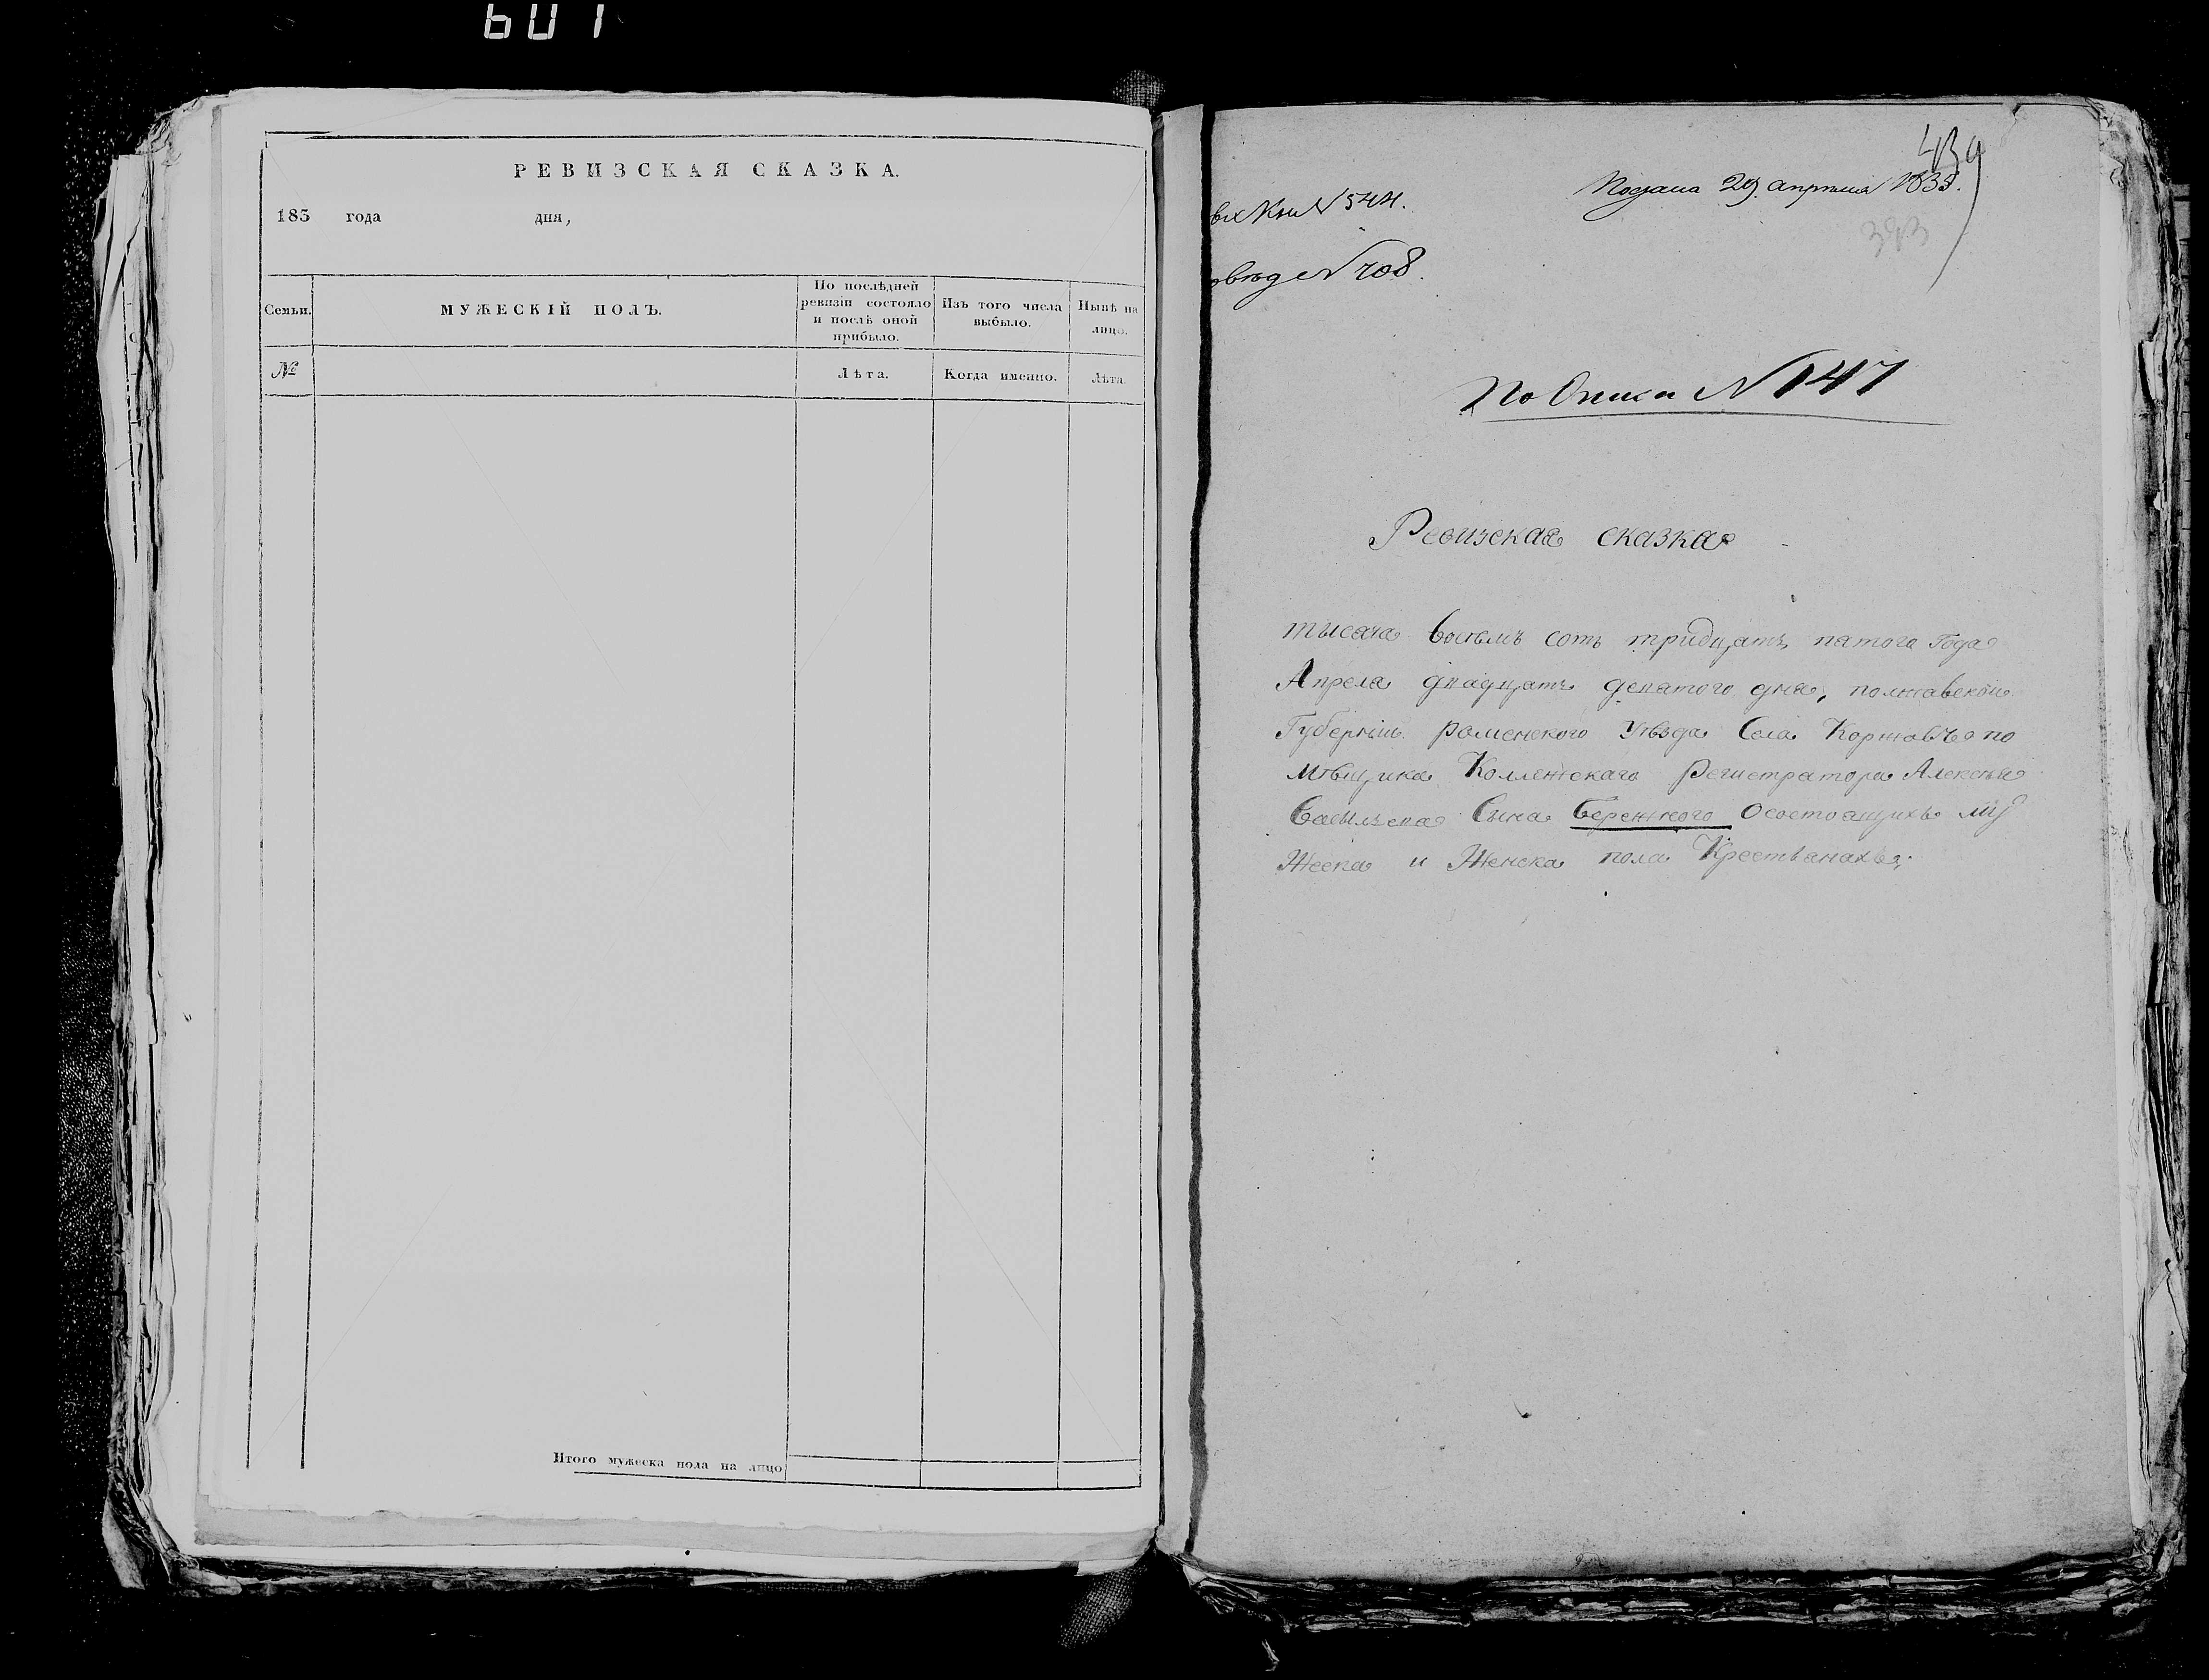 601
РЕВИЗСКАЯ СКАЗКА.
183 года дня,
Семьи.
МУЖЕСКІЙ ПОЛЪ.
По послѣдней
ревизіи состояло
и послѣ оной
прибыло.
Изъ того числа
выбыло.
Нынѣ на
лицо.
№
Лѣта.
Когда именно.
Лѣта.
Итого мужеска пола на лицо
Подана 29 апреля 1835.
393
вх Кни № 544.
№ 708.
По Описи № 147
Ревизская сказка
тысяча восемъ сотъ тридцать пятого года
Апреля двадцать девятого дня, полтавской
Губерніи роменского уѣзда Села Коржовъ по
мѣщика Коллежскаго регистратора Алексѣя
васильева Сына бережного Осостоящихъ му
жеска и Женска пола Крестьянахъ.